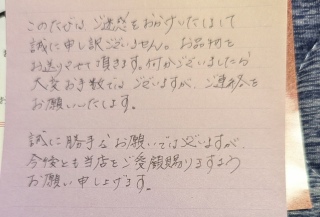 このたびは、ご迷惑をおかけいたしまして
誠に申し訳ございません。お品物を
お送りさせて頂きます。何かございましたら
大変お手数ではございますが、ご連絡を
お願いいたします。
誠に勝手なお願いではございますが、
今後とも当店をご愛顧賜りますよう
お願い申し上げます。